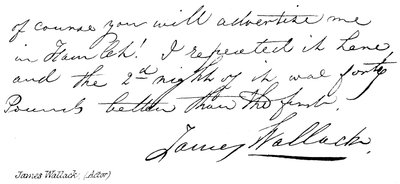 of course you will advertize me
in Hamlet! I repeated it here,
and the 2d night of it was forty
Pounds better than the first.
James Wallack.
James Wallack. (Actor)